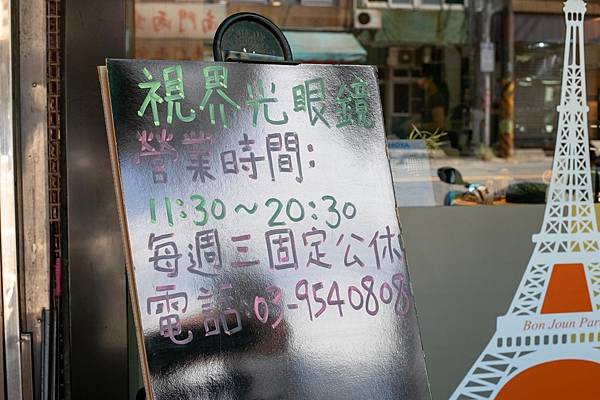 視界光眼鏡
營業時間:
11:30～20:30
每週三固定公休
電話:03-9540808
Bon Joun Pari
HOYA